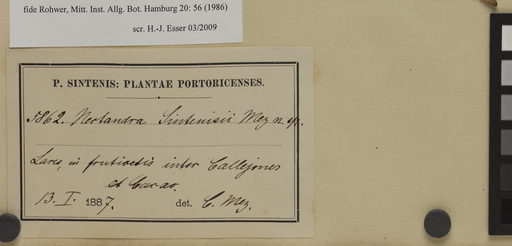 fide Rohwer, Mitt. Inst. Allg. Bot. Hamburg 20: 56 (1986)
scr. H.-J. Esser 03/2009
P. SINTENIS: PLANTAE PORTORICENSES.
5862. Nectandra Sintenisii Mez n. sp.
Lares, in fruticetis inter Callejones
et Cacao.
13. I. 1887. det. C. Mez.